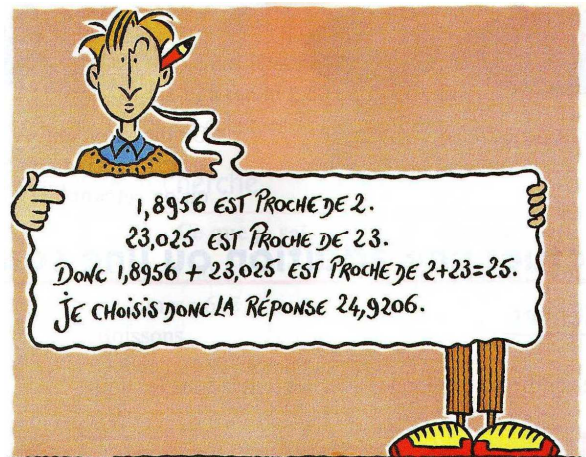 1,8956 EST PROCHE DE 2.
23,025 EST PROCHE DE 23.
DONC 1,8956 + 23,025 EST PROCHE DE 2+23=25.
JE CHOISIS DONC LA RÉPONSE 24,9206.